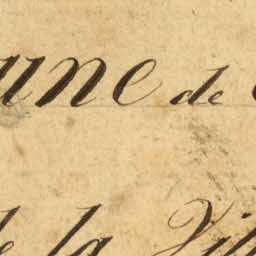 une de
de la Vill